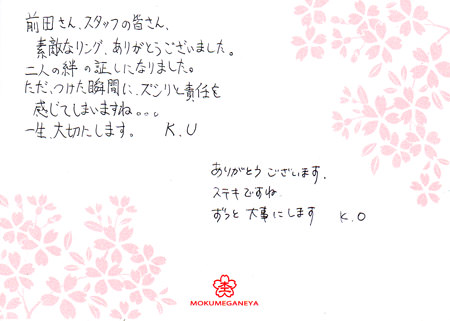 前田さん、スタッフの皆さん、
素敵なリング、ありがとうございました。
二人の絆の証しになりました。
ただ、つけた瞬間に、ズシリと責任を
感じてしまいますね。。。
一生、大切にします。 K.U
ありがとうございます。
ステキですね
ずっと大事にします K.O
MOKUMEGANEYA